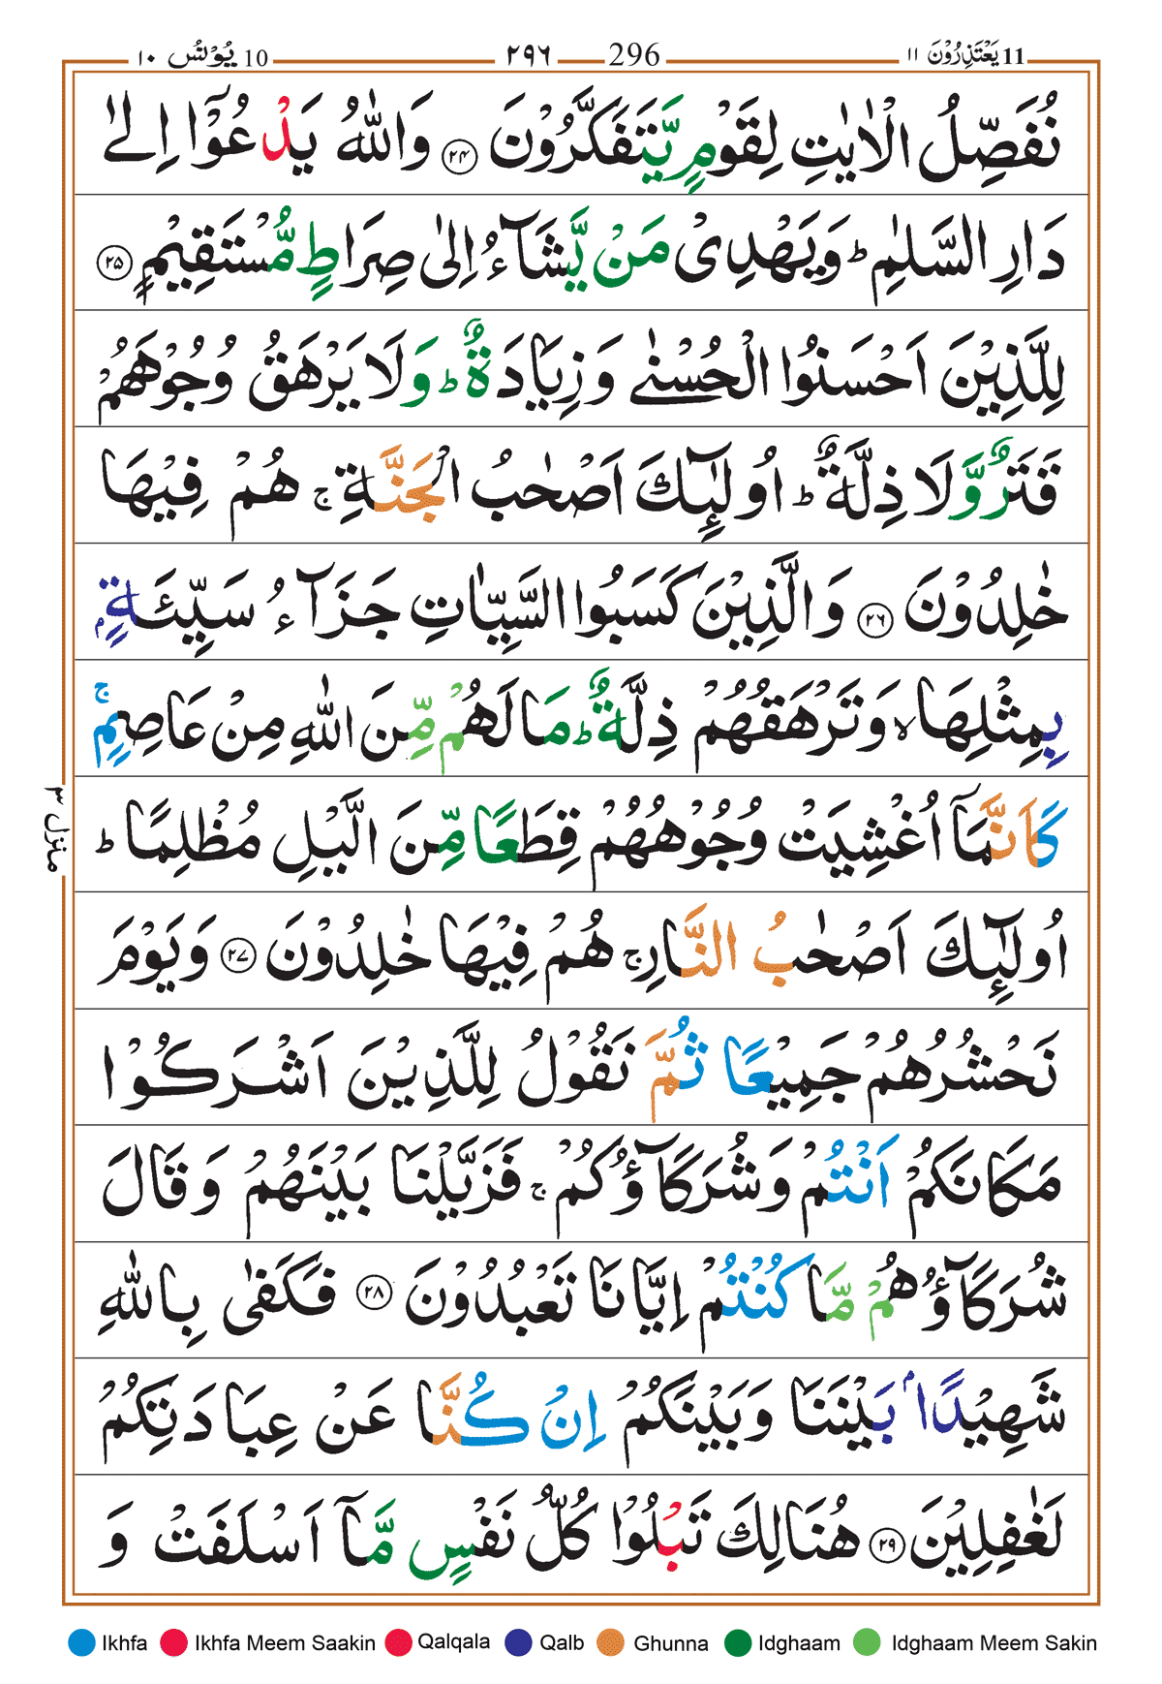 11 يَعْتَذِرُوْنَ ١١ 296 ٢٩٦ 10 يُوْنُسُ ١٠
نُفَصِّلُ الْاٰيٰتِ لِقَوْمٍ يَّتَفَكَّرُوْنَ ﴿۲۴﴾ وَاللّٰهُ يَدْعُوْۤا اِلٰى
دَارِ السَّلٰمِ ؕ وَيَهْدِىْ مَنْ يَّشَآءُ اِلٰى صِرَاطٍ مُّسْتَقِيْمٍ ﴿۲۵﴾
لِلَّذِيْنَ اَحْسَنُوا الْحُسْنٰى وَزِيَادَةٌ ؕ وَلَا يَرْهَقُ وُجُوْهَهُمْ
قَتَرٌ وَّلَا ذِلَّةٌ ؕ اُولٰٓئِكَ اَصْحٰبُ الْجَنَّةِ ۚ هُمْ فِيْهَا
خٰلِدُوْنَ ﴿۲۶﴾ وَالَّذِيْنَ كَسَبُوا السَّيِّاٰتِ جَزَآءُ سَيِّئَةٍۭ
بِمِثْلِهَا ۙ وَتَرْهَقُهُمْ ذِلَّةٌ ؕ مَا لَهُمْ مِّنَ اللّٰهِ مِنْ عَاصِمٍ ۚ
كَاَنَّمَاۤ اُغْشِيَتْ وُجُوْهُهُمْ قِطَعًا مِّنَ الَّيْلِ مُظْلِمًا ؕ
اُولٰٓئِكَ اَصْحٰبُ النَّارِ ۚ هُمْ فِيْهَا خٰلِدُوْنَ ﴿۲۷﴾ وَيَوْمَ
نَحْشُرُهُمْ جَمِيْعًا ثُمَّ نَقُوْلُ لِلَّذِيْنَ اَشْرَكُوْا
مَكَانَكُمْ اَنْتُمْ وَشُرَكَآؤُكُمْ ۚ فَزَيَّلْنَا بَيْنَهُمْ وَقَالَ
شُرَكَآؤُهُمْ مَّا كُنْتُمْ اِيَّانَا تَعْبُدُوْنَ ﴿۲۸﴾ فَكَفٰى بِاللّٰهِ
شَهِيْدًۢا بَيْنَنَا وَبَيْنَكُمْ اِنْ كُنَّا عَنْ عِبَادَتِكُمْ
لَغٰفِلِيْنَ ﴿۲۹﴾ هُنَالِكَ تَبْلُوْا كُلُّ نَفْسٍ مَّاۤ اَسْلَفَتْ وَ
منزل ٣
Ikhfa Ikhfa Meem Saakin Qalqala Qalb Ghunna Idghaam Idghaam Meem Sakin